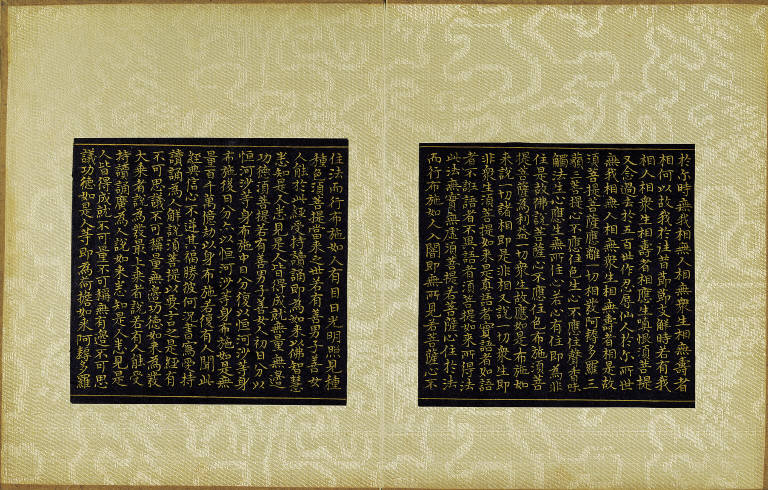 於尒時無我相無人相無衆生相無壽者
相何以故我於往昔節節支解時若有我
相人相衆生相壽者相應生嗔恨須菩提
又念過去於五百世作忍辱仙人於尒所世
無我相無人相無衆生相無壽者相是故
須菩提菩薩應離一切相發阿耨多羅三
藐三菩提心不應住色生心不應住聲香味
觸法生心應生無所住心若心有住即為非
住是故佛說菩薩心不應住色布施須菩
提菩薩為利益一切衆生故應如是布施如
來說一切諸相即是非相又說一切衆生即
非衆生須菩提如來是真語者實語者如語
者不誑語者不異語者須菩提如來所得法
此法無實無虛須菩提若菩薩心住於法
而行布施如人入闇即無所見若菩薩心不
住法而行布施如人有目日光明照見種
種色須菩提當來之世若有善男子善女
人能於此經受持讀誦即為如來以佛智慧
悉知是人悉見是人皆得成就無量無邊
功德須菩提若有善男子善女人初日分以
恒河沙等身布施中日分復以恒河沙等身
布施後日分亦以恒河沙等身布施如是無
量百千萬億劫以身布施若復有人聞此
經典信心不逆其福勝彼何況書寫受持
讀誦為人解說須菩提以要言之是經有
不可思議不可稱量無邊功德如來為發
大乘者說為發最上乘者說若有人能受
持讀誦廣為人說如來悉知是人悉見是
人皆得成就不可量不可稱無有邊不可思
議功德如是人等即為荷擔如來阿耨多羅